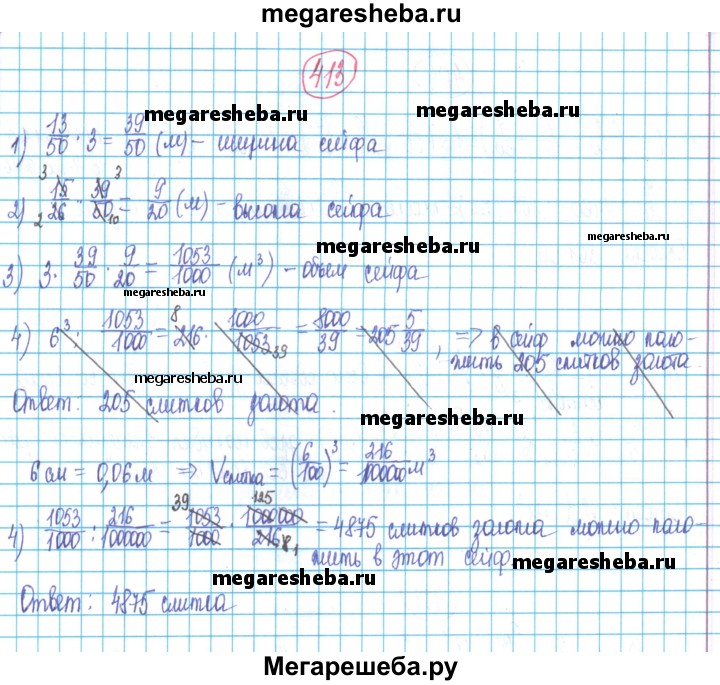 megaresheba.ru
413
megaresheba.ru
1) 13/50 · 3 = 39/50 (м) – ширина сейфа
megaresheba.ru
2) 15/26 · 39/50 = 9/20 (м) – высота сейфа
megaresheba.ru
megaresheba.ru
3) 3 · 39/50 · 9/20 = 1053/1000 (м³) – объем сейфа
megaresheba.ru
4) 6³ · 1053/1000 = 216 · 1000/1053 = 8000/39 = 205 5/39, => в сейф можно поло-
жить 205 слитков золота
megaresheba.ru
Ответ: 205 слитков золота.
megaresheba.ru
6 см = 0,06 м => Vслитка = (6/100)³ = 216/100000 м³
4) 1053/1000 : 216/100000 = 1053/1000 · 1000000/216 = 4875 слитков золота можно поло-
жить в этот сейф
megaresheba.ru
megaresheba.ru
Ответ: 4875 слитка
Мегарешеба.ру